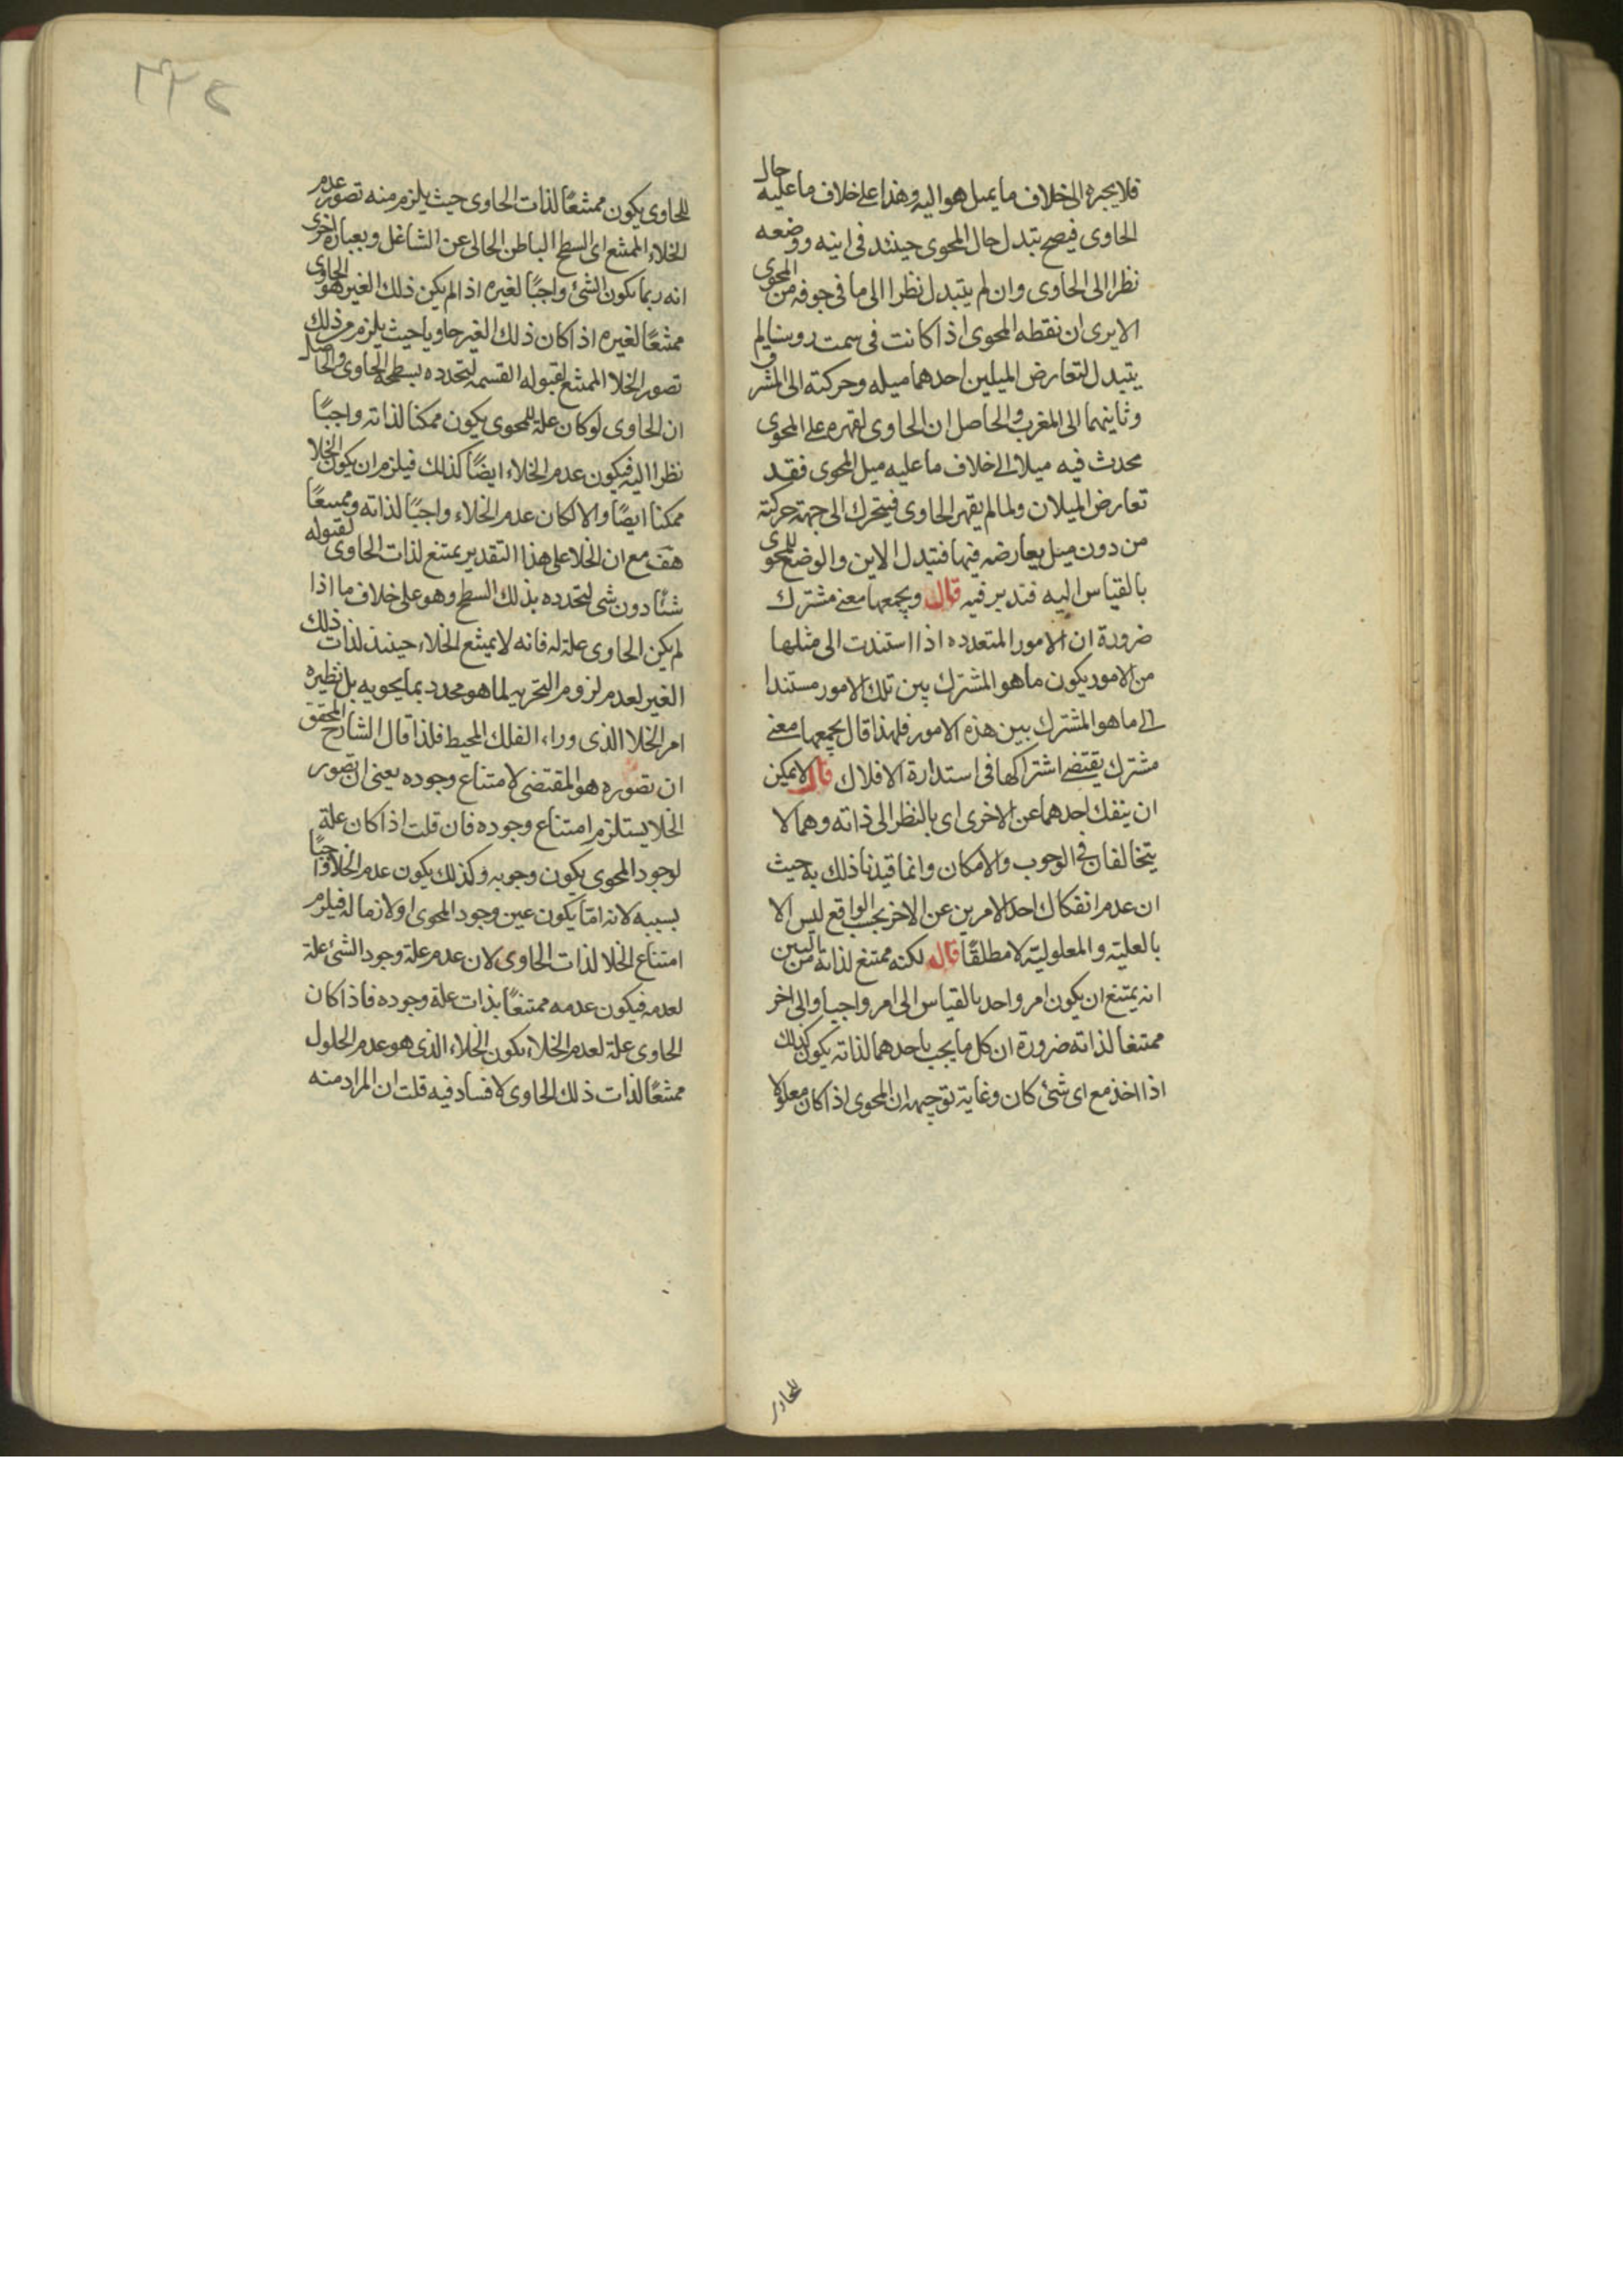 فلا يجبره الى خلاف ما يميل هو اليه وهذا على خلاف ما عليه حال
الحاوى فيصح تبدل حال المحوى حينئذ فى اينه ووضعه
نظرا الى الحاوى وان لم يتبدل نظرا الى ما فى جوفه من المحوى
الا يرى ان نقطه المحوى اذا كانت فى سمت روسنا لم
يتبدل لتعارض الميلين احدهما ميله وحركته الى المشرق
وثانيهما الى المغرب والحاصل ان الحاوى لقهره على المحوى
محدث فيه ميلا الى خلاف ما عليه ميل المحوى فقد
تعارض الميلان ولما لم يقهر الحاوى فيتحرك الى جهة حركته
من دون ميل يعارضه فيها فتبدل الاين والوضع للمحوى
بالقياس اليه فتدبر فيه قال ويجمعها معنى مشترك
ضرورة ان الامور المتعدده اذا استندت الى مثلها
من الامور يكون ما هو المشترك بين تلك الامور مستندا
الى ما هو المشترك بين هذه الامور فلهذا قال يجمعها معنى
مشترك يقتضى اشتراكها فى استدارة الافلاك قال لا يمكن
ان ينفك احدهما عن الاخرى اى بالنظر الى ذاته وهما لا
يتخالفان فى الوجوب والامكان وانما قيدنا ذلك به حيث
ان عدم انفكاك احد الامرين عن الاخر بحب الواقع ليس الا
بالعلية والمعلولية لا مطلقًا قال لكنه ممتنع لذاته من البين
انه يمتنع ان يكون امر واحد بالقياس الى امر واجبا والى اخر
ممتنعا لذاته ضرورة ان كل ما يجب باحدهما لذاته يكون كذلك
اذا اخذ مع اى شئ كان وغاية توجيهه ان المحوى اذا كان معلولا
للحاوى
٣٢٤
للحاوى يكون ممتنعًا لذات الحاوى حيث يلزم منه تصور عدم
الخلاء الممتنع اى السطح الباطن الحالى عن الشاغل وبعبارة اخرى
انه ربما يكون الشئ واجبًا لغيره اذا لم يكن ذلك الغير هو الحاوى
ممتنعًا لغيره اذا كان ذلك الغير حاويا حيث يلزم من ذلك
تصور الخلا الممتنع لقبوله القسمه لتحدده بسطحه الحاوى والحاصل
ان الحاوى لو كان علة للمحوى يكون ممكنا لذاته واجبًا
نظرا اليه فيكون عدم الخلاء ايضًا كذلك فيلزم ان يكون الخلا
ممكنا ايضًا والا لكان عدم الخلاء واجبًا لذاته وممتنعًا
هف مع ان الخلا على هذا التقدير يمتنع لذات الحاوى لقبوله
شئًا دون شى لتحدده بذلك السطح وهو على خلاف ما اذا
لم يكن الحاوى علة له فانه لا يمتنع الخلاء حينئذ لذات ذلك
الغير لعدم لزوم التحريه لما هو محدد بما يحويه بل نظيره
امر الخلا الذى وراء الفلك المحيط فلذا قال الشارح المحقق
ان تصوره هو المقتضى لامتناع وجوده يعنى ان تصور
الخلا يستلزم امتناع وجوده فان قلت اذا كان علة
لوجود المحوى يكون وجوبه وكذلك يكون عدم الخلا واجبًا
بسببه لانه اما يكون عين وجود المحوى او لازما له فيلزم
امتناع الخلا لذات الحاوى لان عدم علة وجود الشئ علة
لعدمه فيكون عدمه ممتنعًا بذات علة وجوده فاذا كان
الحاوى علة لعدم الخلاء يكون الخلاء الذى هو عدم الحلول
ممتنعًا لذات ذلك الحاوى لا فساد فيه قلت ان المراد منه